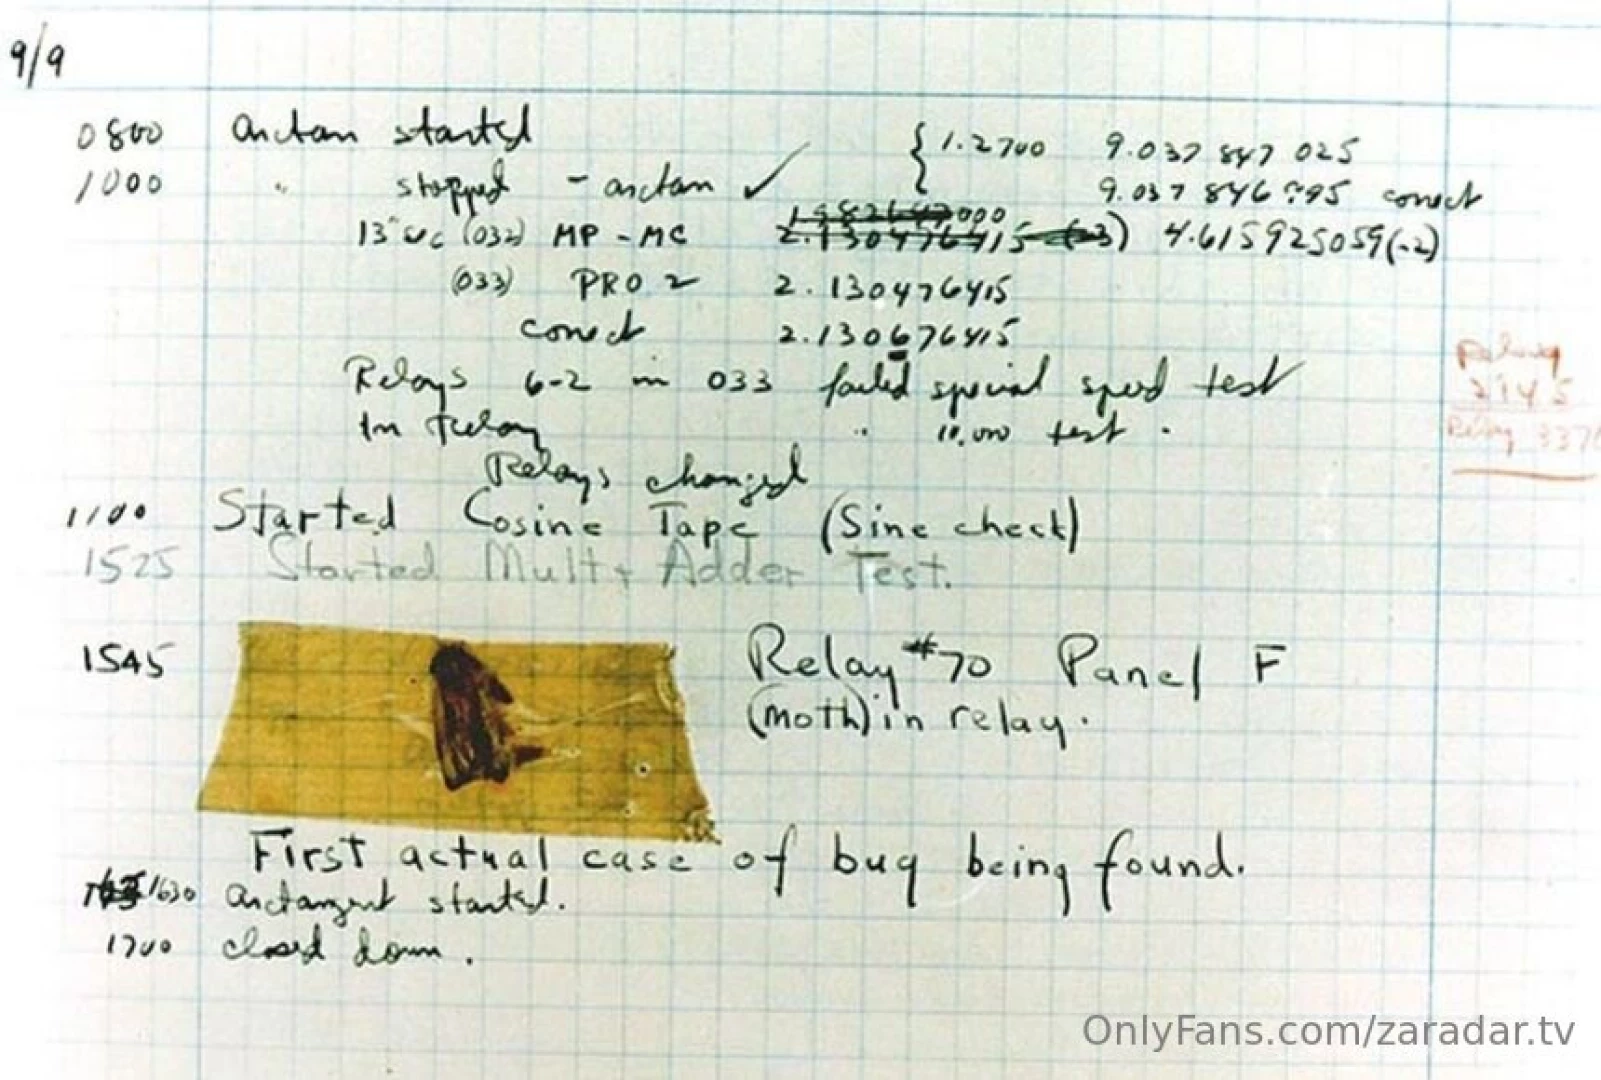 9/9
0800 arctan started { 1.2700 9.037 847 025
1000 " stopped - arctan ✓ 9.037 846 795 correct
1982647000
13"uc (032) MP - MC 2.130476415 (-3) 4.615925059(-2)
(033) PRO 2 2.130476415
correct 2.130676415
Relays 6-2 in 033 failed special speed test
In Relay " 11,000 test .
Relay
2145
Relay 3370
Relays changed
1100 Started Cosine Tape (Sine check)
1525 Started Mult + Adder Test.
1545 Relay #70 Panel F
(moth) in relay.
First actual case of bug being found.
1630 arctangent started.
1700 closed down.
OnlyFans.com/zaradar.tv